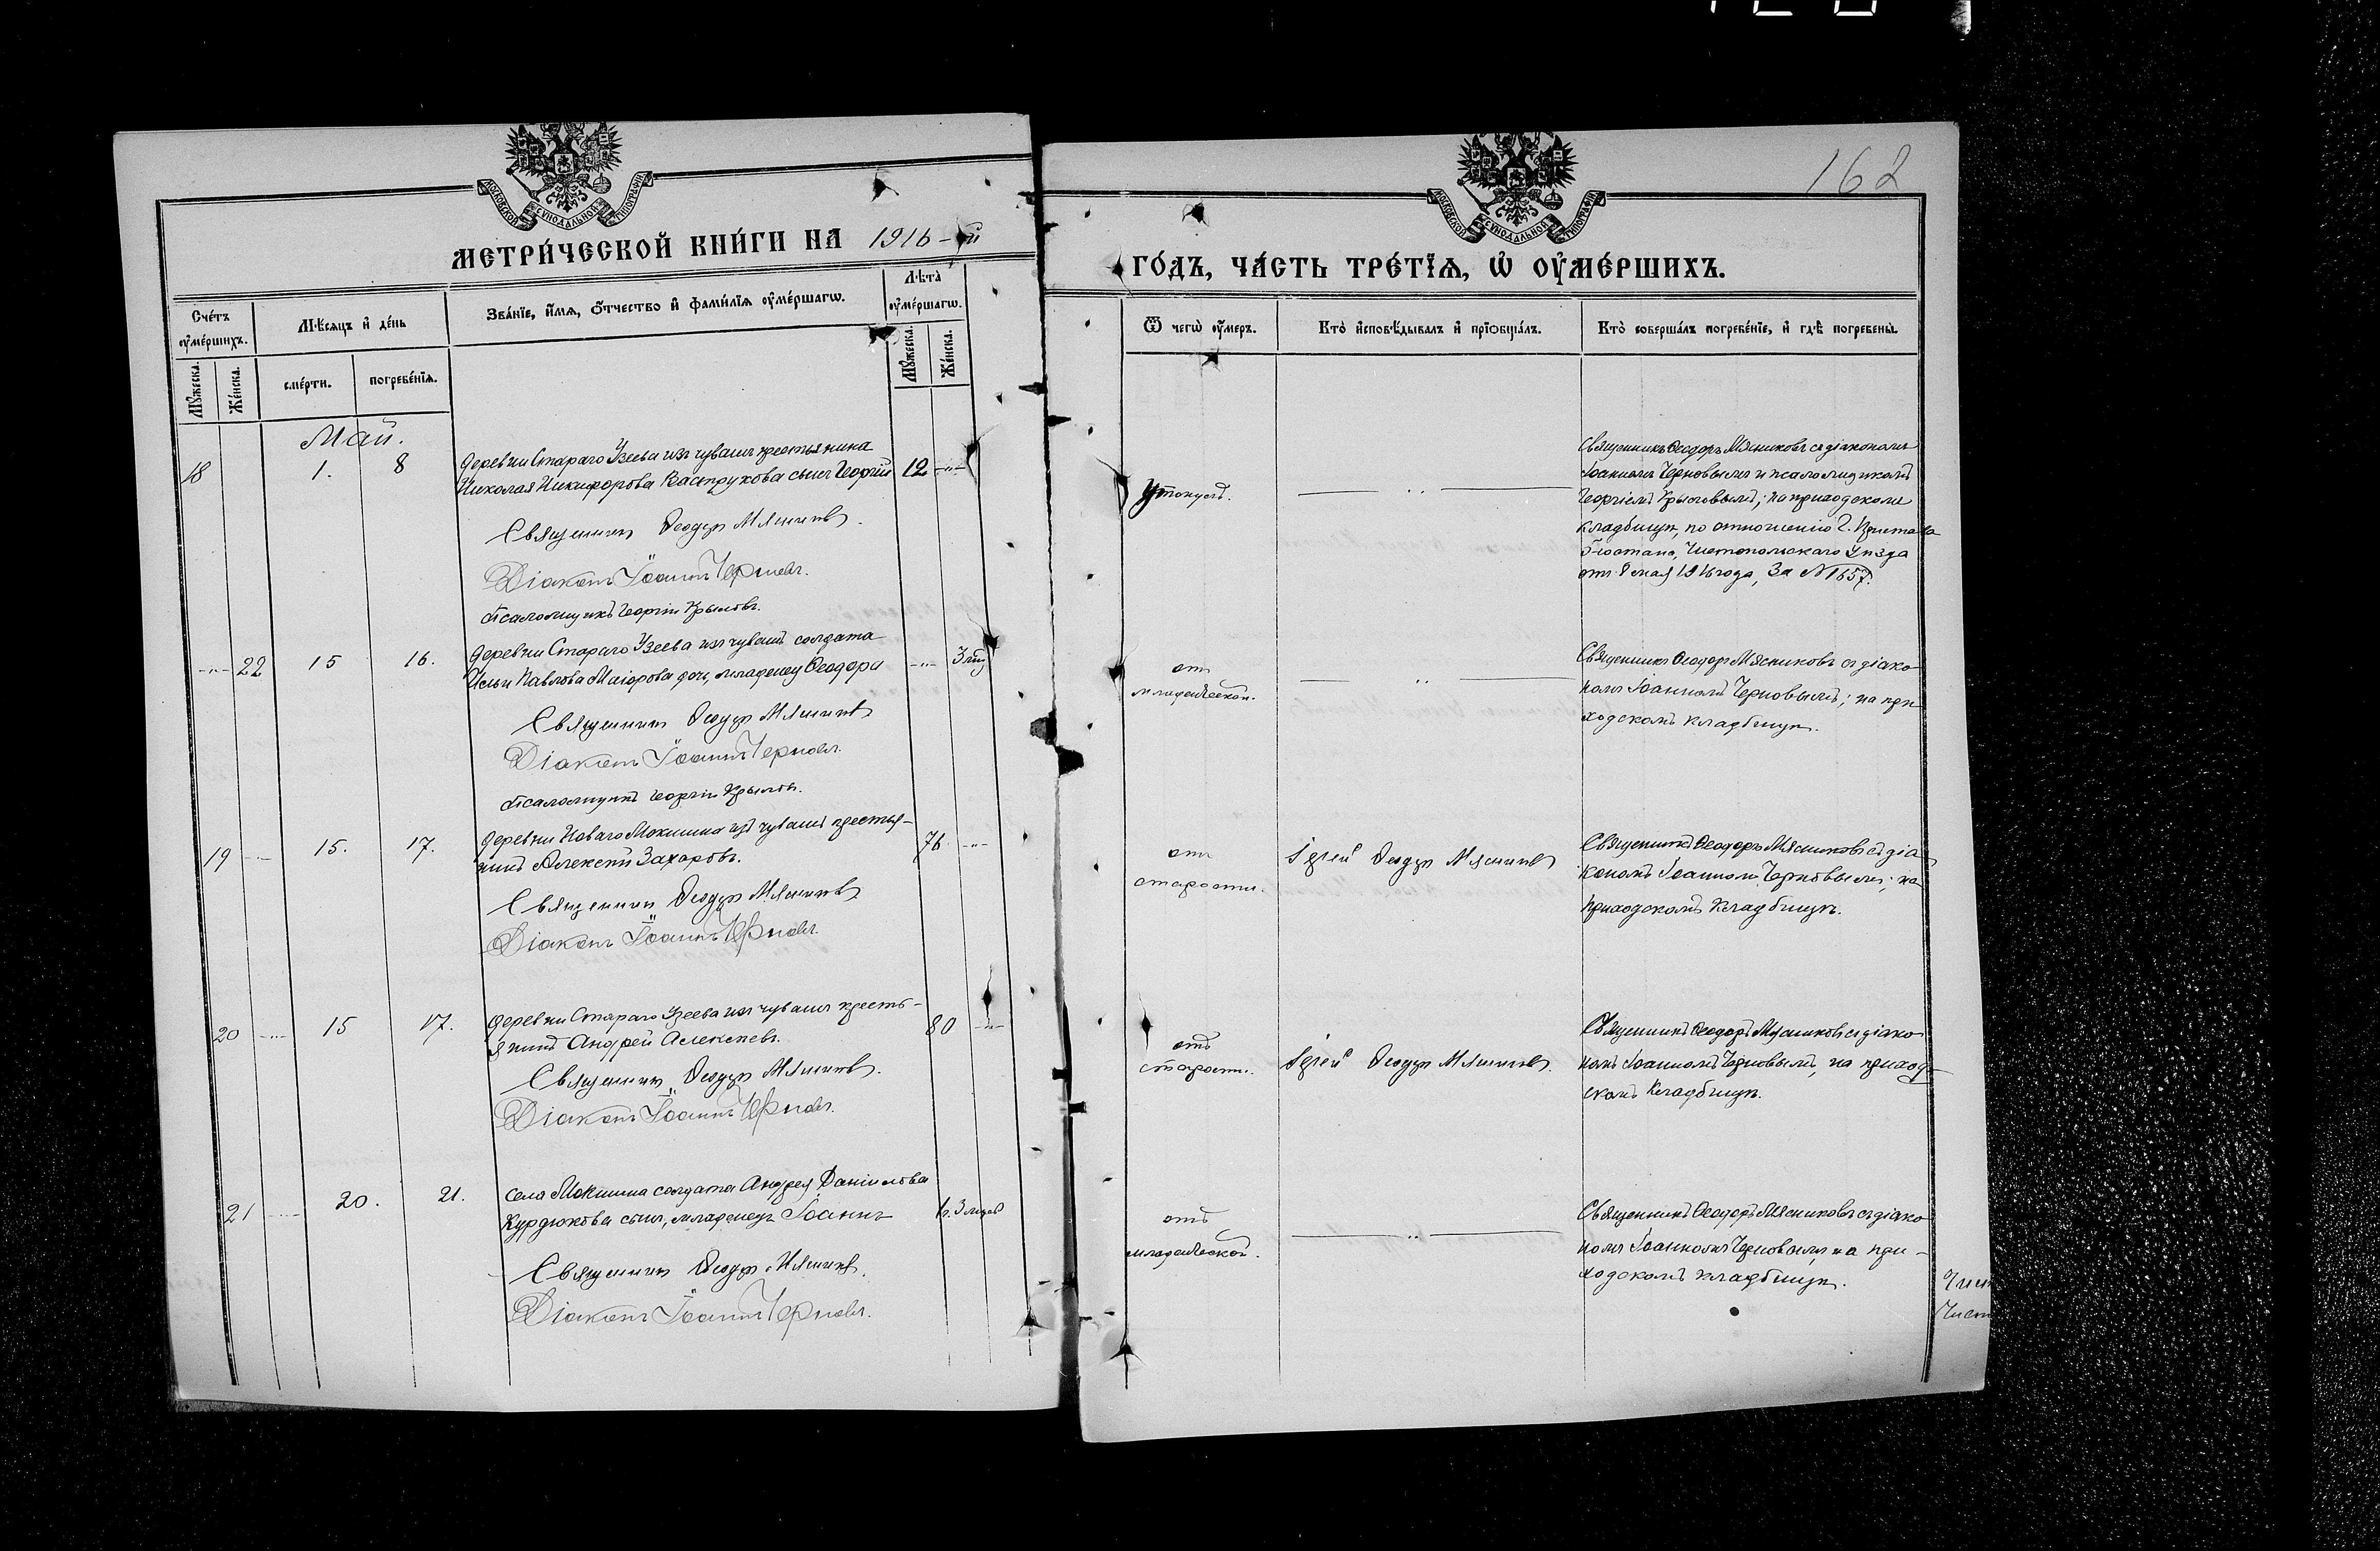 162
МОСКОВСКОЙ СѴНОДАЛЬНОЙ ТИПОГРАФІИ
МОСКОВСКОЙ СѴНОДАЛЬНОЙ ТИПОГРАФІИ
МЕТРИ́ЧЕСКОЙ КНИ́ГИ НА 1916-й
ГО́ДЪ, ЧА́СТЬ ТРЕ́ТІѦ, Ѡ҆ ОУ҆МЕ́РШИХЪ.
Сче́тъ оу҆ме́ршихъ.
Мѣ́сяцъ и҆ де́нь
Зва́нїе, и҆́мѧ, ѻ҆́тчество и҆ фами́лїѧ оу҆ме́ршагѡ.
Лѣ́та оу҆ме́ршагѡ.
Мꙋ́жеска.
Же́нска.
сме́рти.
погребе́нїѧ.
Мꙋ́жеска.
Же́нска.
Ѿ чегѡ̀ оу҆́меръ.
Кто̀ и҆сповѣ́дывалъ и҆ прїѡбща́лъ.
Кто̀ соверша́лъ погребе́нїе, и҆ гдѣ̀ погребены̀.
Май.
18 1. 8
Деревни Стараго Узеева изъ чувашъ крестьянина
Николая Никифорова Кастрюкова сынъ Георгій 12 -"-
Священникъ Ѳеодоръ Мясниковъ.
Діаконъ Іоаннъ Черновъ.
Псаломщикъ Георгій Крыловъ.
Утонулъ.
Священникъ Ѳеодоръ Мясниковъ съ діакономъ
Іоанномъ Черновымъ и псаломщикомъ
Георгіемъ Крыловымъ; на приходскомъ
кладбищѣ, по отношенію Г. Пристава
стана, Чистопольскаго уѣзда
отъ 8 мая 1916 года, за №1657.
-"- 22 15 16.
Деревни Стараго Узеева изъ чувашъ солдата
Ильи Павлова Маіорова дочь, младенец Ѳеодора -"- 3 мц
Священникъ Ѳеодоръ Мясниковъ
Діаконъ Іоаннъ Черновъ.
Псаломщикъ Георгій Крыловъ.
отъ
младенческой.
Священникъ Ѳеодоръ Мясниковъ съ діако-
номъ Іоанномъ Черновымъ; на при-
ходскомъ кладбищѣ.
19 -"- 15. 17.
Деревни Новаго Мокшина изъ чувашъ крестья-
нинъ Алексѣй Захаровъ. 76 -"-
Священникъ Ѳеодоръ Мясниковъ
Діаконъ Іоаннъ Черновъ.
отъ
старости.
Іерей Ѳеодоръ Мясниковъ
Священникъ Ѳеодоръ Мясниковъ съ діа-
кономъ Іоанномъ Черновымъ; на
приходскомъ кладбищѣ.
20 -"- 15 17.
Деревни Стараго Узеева изъ чувашъ кресть-
янинъ Андрей Алексѣевъ. 80 -"-
Священникъ Ѳеодоръ Мясниковъ.
Діаконъ Іоаннъ Черновъ.
отъ
старости.
Іерей Ѳеодоръ Мясниковъ
Священникъ Ѳеодоръ Мясниковъ съ діако-
номъ Іоанномъ Черновымъ, на приход-
скомъ кладбищѣ.
21 -"- 20. 21.
Села Мокшина солдата Андрея Даніилова
Курдюкова сынъ, младенецъ Іоаннъ 1 г. 3 мцев
Священникъ Ѳеодоръ Мясниковъ.
Діаконъ Іоаннъ Черновъ.
отъ
младенческой.
Священникъ Ѳеодоръ Мясниковъ съ діако-
номъ Іоанномъ Черновымъ на при-
ходскомъ кладбищѣ.